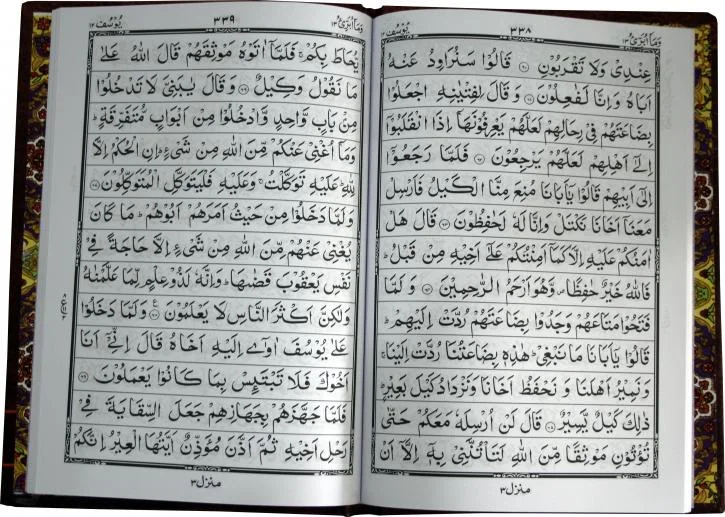 وَمَآ اُبَرِّئُ ١٣
٣٣٨
يُوْسُف ١٢
عِنْدِيْ وَلَا تَقْرَبُوْنِ ۝٦٠ قَالُوْا سَنُرَاوِدُ عَنْهُ
اَبَاهُ وَاِنَّا لَفٰعِلُوْنَ ۝٦١ وَقَالَ لِفِتْيٰنِهِ اجْعَلُوْا
بِضَاعَتَهُمْ فِيْ رِحَالِهِمْ لَعَلَّهُمْ يَعْرِفُوْنَهَاۤ اِذَا انْقَلَبُوْۤا
اِلٰۤى اَهْلِهِمْ لَعَلَّهُمْ يَرْجِعُوْنَ ۝٦٢ فَلَمَّا رَجَعُوْۤا
اِلٰۤى اَبِيْهِمْ قَالُوْا يٰۤاَبَانَا مُنِعَ مِنَّا الْكَيْلُ فَاَرْسِلْ
مَعَنَاۤ اَخَانَا نَكْتَلْ وَاِنَّا لَهٗ لَحٰفِظُوْنَ ۝٦٣ قَالَ هَلْ
اٰمَنُكُمْ عَلَيْهِ اِلَّا كَمَاۤ اَمِنْتُكُمْ عَلٰۤى اَخِيْهِ مِنْ قَبْلُ ؕ
فَاللّٰهُ خَيْرٌ حٰفِظًا ۪ وَّهُوَ اَرْحَمُ الرّٰحِمِيْنَ ۝٦٤ وَلَمَّا
فَتَحُوْا مَتَاعَهُمْ وَجَدُوْا بِضَاعَتَهُمْ رُدَّتْ اِلَيْهِمْ ؕ
قَالُوْا يٰۤاَبَانَا مَا نَبْغِيْ ؕ هٰذِهٖ بِضَاعَتُنَا رُدَّتْ اِلَيْنَا ۚ
وَنَمِيْرُ اَهْلَنَا وَنَحْفَظُ اَخَانَا وَنَزْدَادُ كَيْلَ بَعِيْرٍ ؕ
ذٰلِكَ كَيْلٌ يَّسِيْرٌ ۝٦٥ قَالَ لَنْ اُرْسِلَهٗ مَعَكُمْ حَتّٰى
تُؤْتُوْنِ مَوْثِقًا مِّنَ اللّٰهِ لَتَاْتُنَّنِيْ بِهٖۤ اِلَّاۤ اَنْ
منزل ٣
وَمَآ اُبَرِّئُ ١٣
٣٣٩
يُوْسُف ١٢
يُّحَاطَ بِكُمْ ۚ فَلَمَّاۤ اٰتَوْهُ مَوْثِقَهُمْ قَالَ اللّٰهُ عَلٰى
مَا نَقُوْلُ وَكِيْلٌ ۝٦٦ وَقَالَ يٰبَنِيَّ لَا تَدْخُلُوْا
مِنْۢ بَابٍ وَّاحِدٍ وَّادْخُلُوْا مِنْ اَبْوَابٍ مُّتَفَرِّقَةٍ ؕ
وَمَاۤ اُغْنِيْ عَنْكُمْ مِّنَ اللّٰهِ مِنْ شَيْءٍ ؕ اِنِ الْحُكْمُ اِلَّا
لِلّٰهِ ؕ عَلَيْهِ تَوَكَّلْتُ ۚ وَعَلَيْهِ فَلْيَتَوَكَّلِ الْمُتَوَكِّلُوْنَ ۝٦٧
وَلَمَّا دَخَلُوْا مِنْ حَيْثُ اَمَرَهُمْ اَبُوْهُمْ ؕ مَا كَانَ
يُغْنِيْ عَنْهُمْ مِّنَ اللّٰهِ مِنْ شَيْءٍ اِلَّا حَاجَةً فِيْ
نَفْسِ يَعْقُوْبَ قَضٰىهَا ؕ وَاِنَّهٗ لَذُوْ عِلْمٍ لِّمَا عَلَّمْنٰهُ
وَلٰكِنَّ اَكْثَرَ النَّاسِ لَا يَعْلَمُوْنَ ۝٦٨ وَلَمَّا دَخَلُوْا
عَلٰى يُوْسُفَ اٰوٰۤى اِلَيْهِ اَخَاهُ قَالَ اِنِّيْۤ اَنَا
اَخُوْكَ فَلَا تَبْتَئِسْ بِمَا كَانُوْا يَعْمَلُوْنَ ۝٦٩
فَلَمَّا جَهَّزَهُمْ بِجَهَازِهِمْ جَعَلَ السِّقَايَةَ فِيْ
رَحْلِ اَخِيْهِ ثُمَّ اَذَّنَ مُؤَذِّنٌ اَيَّتُهَا الْعِيْرُ اِنَّكُمْ
منزل ٣